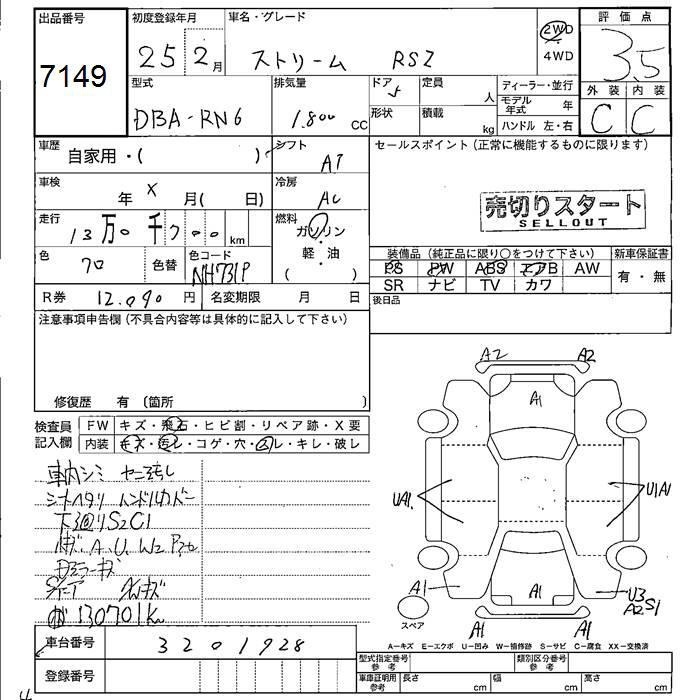 出品番号 初度登録年月 車名・グレード 評価点
7149 25 2月 ストリーム RSZ 2WD 4WD 3.5
型式 排気量 ドア 定員 ディーラー・並行 外装 内装
DBA-RN6 1.800 CC 5 人 モデル年式 年 C C
形状 積載 kg ハンドル 左・右
車歴 自家用・( ) シフト AT セールスポイント (正常に機能するものに限ります)
車検 年 X 月( 日) 冷房 AC
売切りスタート
SELLOUT
走行 13万0千700km 燃料 ガソリン
軽・油
( )
色 クロ 色替 色コード NH731P
装備品 (純正品に限り○をつけて下さい) 新車保証書
PS PW ABS エアB AW 有・無
SR ナビ TV カワ
R券 12.090円 名変期限 月 日 後日品
注意事項申告欄 (不具合内容等は具体的に記入して下さい)
修復歴 有 (箇所 )
A2 A2
A1
検査員 FW キズ・飛石・ヒビ割・リペア跡・X要
記入欄 内装 キズ・汚レ・コゲ・穴・スレ・キレ・破レ
車内シミ
シートヘタリ ハンドルカバー
S2C1
A.U.W2
キズ
130701k
UA1 U1A1
A1 A1 U3
A2S1
スペア
A1 A1
A-キズ E-エクボ U-凹み W-補修跡 S-サビ C-腐食 XX-交換済
車台番号 3201928
型式指定番号 参考 類別区分番号 参考
登録番号 車庫証明用 参考 長さ cm 幅 cm 高さ cm